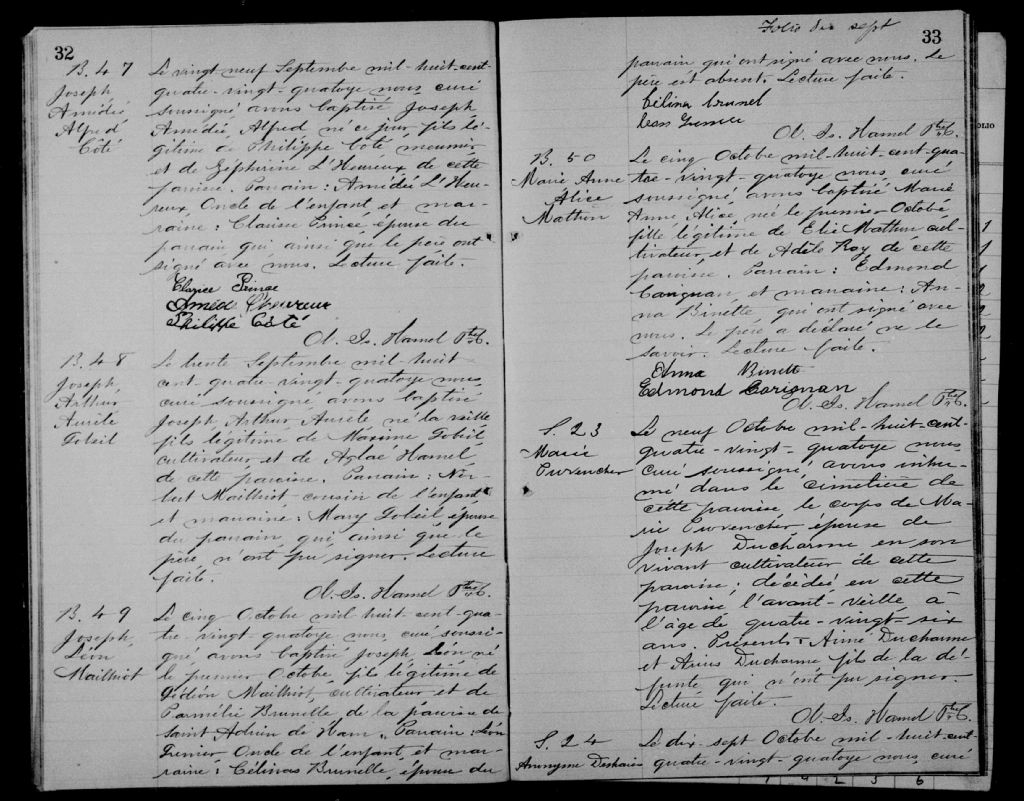 32
B. 47
Joseph
Amédée
Alfred
Côté
Le vingt neuf Septembre mil-huit-cent-
quatre-vingt-quatorze nous, curé
soussigné avons baptisé Joseph
Amédée, Alfred né ce jour, fils lé-
gitime de Philippe Côté meunier
et de Zéphirine L'Heureux de cette
paroisse. Parrain: Amédée L'Heu-
reux Oncle de l'enfant et mar-
raine: Clarisse Prince épouse du
parrain qui ainsi que le père ont
signé avec nous. Lecture faite.
Clarice Prince
Amédé Lheureux
Philippe Côté
Ol. Is. Hamel Ptre C.
B. 48
Joseph
Arthur
Aurèle
Tobeil
Le trente Septembre mil-huit
cent-quatre-vingt-quatorze nous,
curé soussigné avons baptisé
Joseph Arthur Aurèle né la veille
fils légitime de Maxime Tobeil
cultivateur et de Aglae Hamel
de cette paroisse. Parrain: Nor-
bert Mailhiot cousin de l'enfant
et marraine: Mary Tobeil épouse
du parrain, qui ainsi que le
père n'ont pu signer. Lecture
faite.
Ol. Is. Hamel Ptre C.
B. 49
Joseph
Léon
Mailhiot
Le cinq Octobre mil-huit-cent-qua-
tre-vingt-quatorze nous, curé soussi-
gné avons baptisé Joseph Léon né
le premier Octobre, fils légitime de
Gédéon Mailhiot, cultivateur et de
Pamélie Brunelle de la paroisse de
Saint Adrien de Ham. Parrain: Léon
Grenier Oncle de l'enfant et mar-
raine: Célinas Brunelle, épouse du
Folio dix sept
33
parrain qui ont signé avec nous. Le
père est absent. Lecture faite.
Célina Brunel
Ol. Is. Hamel Ptre C.
B. 50
Marie Anne
Alice
Mathon
Le cinq Octobre mil-huit-cent-qua-
tre-vingt-quatorze nous, curé
soussigné, avons baptisé Marie
Anne, Alice, née le premier Octobre,
fille légitime de Elie Mathon cul-
tivateur, et de Adèle Roy de cette
paroisse. Parrain: Edmond
Carignan, et marraine: An-
na Binette, qui ont signé avec
nous. Le père a déclaré ne le
savoir. Lecture faite.
Anna Binett
Edmond Carignan
Ol. Is. Hamel Ptre C.
S. 23
Marie
Provencher
Le neuf Octobre mil-huit-cent-
quatre-vingt-quatorze nous,
curé soussigné, avons inhu-
mé dans le cimetière de
cette paroisse, le corps de Ma-
rie Provencher épouse de
Joseph Ducharme en son
vivant cultivateur de cette
paroisse; décédée en cette
paroisse l'avant-veille à
l'âge de quatre-vingt-six
ans. Présents: Aimé Ducharme
et Arius Ducharme fils de la dé-
funte qui n'ont pu signer.
Lecture faite.
Ol. Is. Hamel Ptre C.
S. 24
Anonyme Deshaies
Le dix-sept Octobre mil-huit-cent-
quatre-vingt-quatorze nous, curé
OLIO